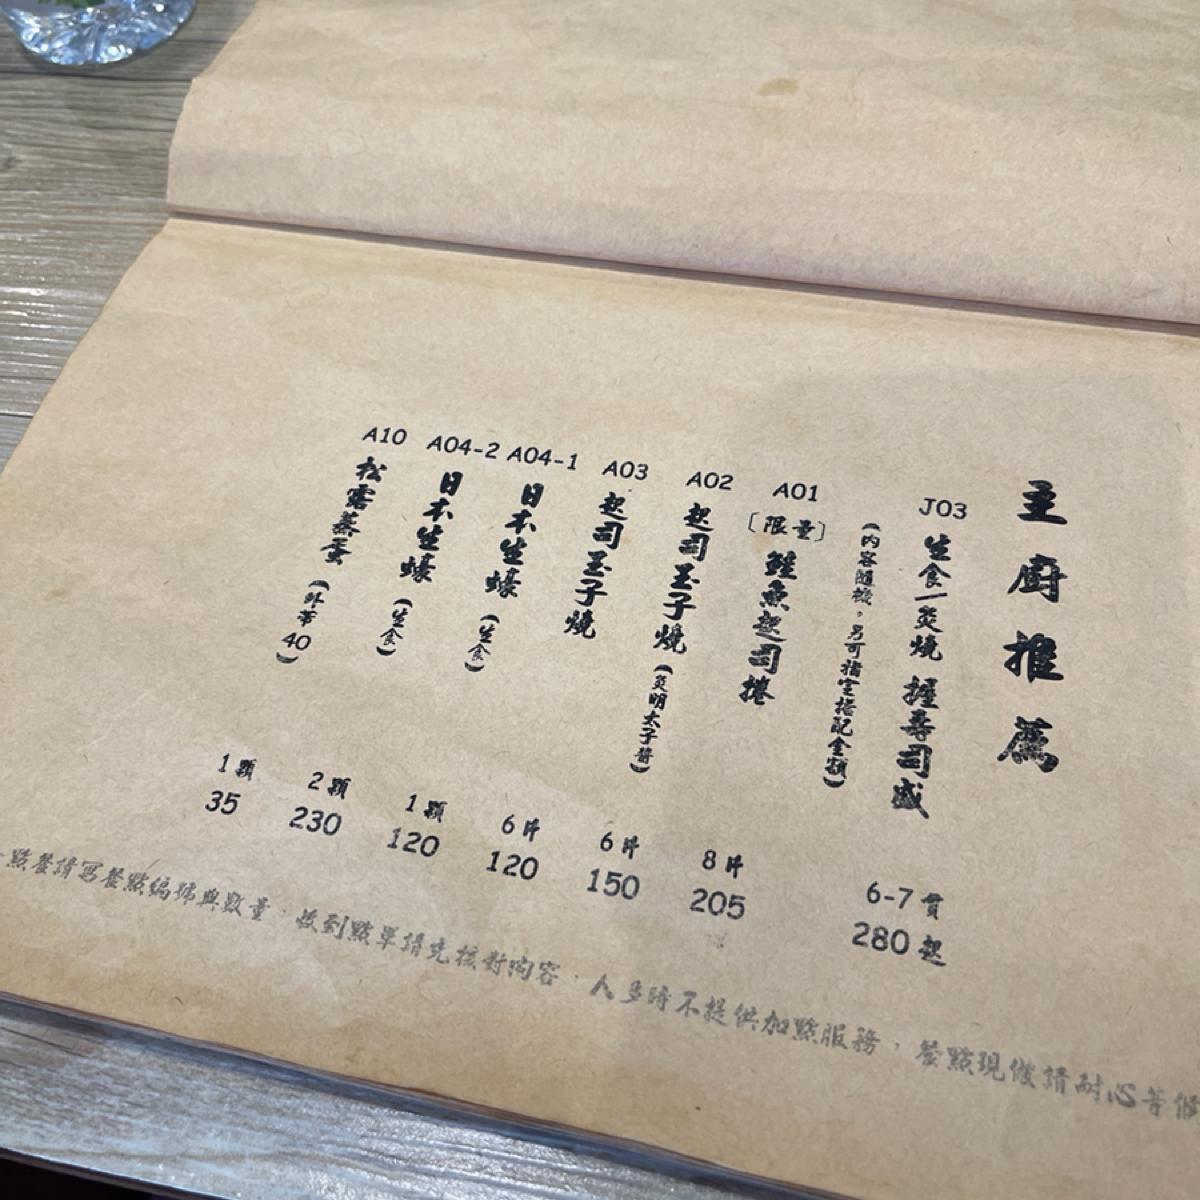 主廚推薦
J03 生食／炙燒 握壽司盛 6-7 貫 280 起
(內容隨機，另可指定搭配金額)
A01 〔限量〕鮭魚起司捲 8片 205
A02 起司玉子燒 (炙明太子醬) 6片 150
A03 起司玉子燒 6片 120
A04-1 日本生蠔 (生食) 1顆 120
A04-2 日本生蠔 (生食) 2顆 230
A10 松露蒸蛋 (外帶40) 1顆 35
點餐請寫餐點編號與數量，收到點單請先核對內容，人多時不提供加點服務，餐點現做請耐心等候